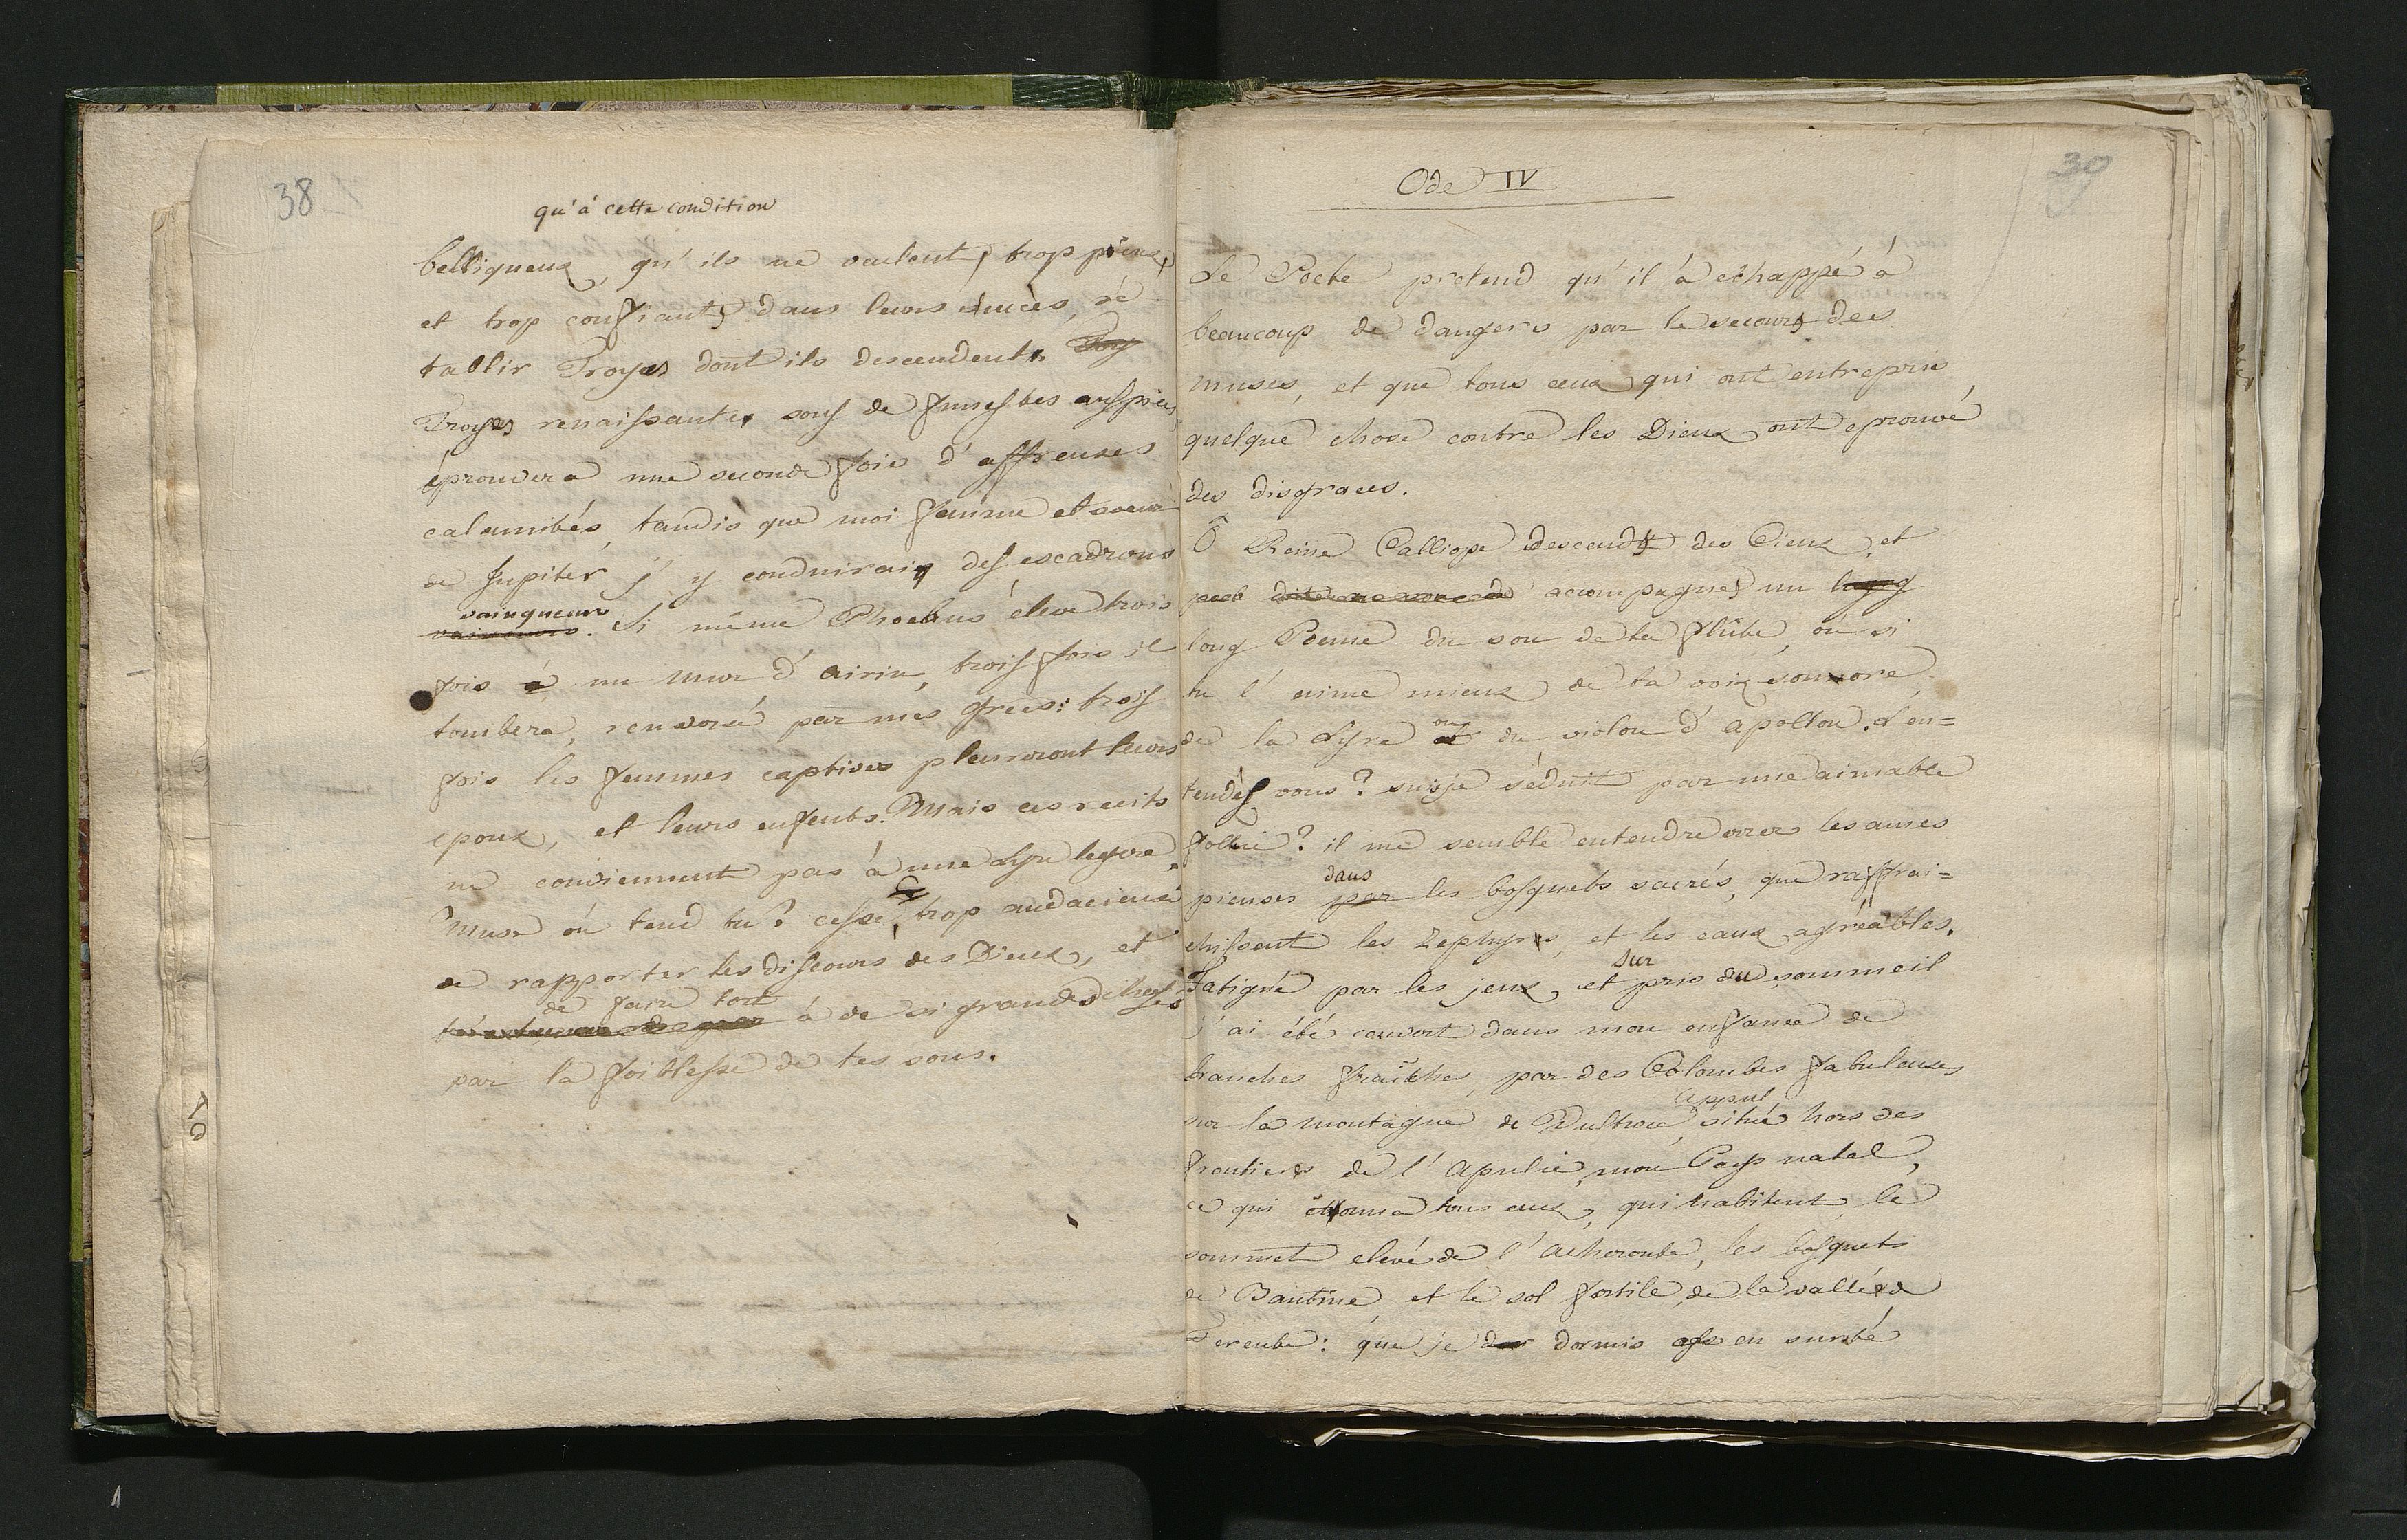 38
qu'à cette condition
belliqueux, qu'ils ne veulent, trop pieux,
et trop confiants dans leurs succès, ré
tablir Troyes dont ils descendent. Troy
Troyes renaissante, sous de funestes auspices,
éprouvera une seconde fois d'affreuses
calamités, tandis que moi femme et soeur
de Jupiter j'y conduirai des escadrons
vainqueurs
. Si même Phoebus éleve trois
fois à un mur d'airin, trois fois il
tombera, renversé par mes grecs: trois
fois les femmes captives pleureront leurs
epoux, et leurs enfents. Mais ces recits
ne conviennent pas à une Lyre legere.
Muse ôu tend tu? cesse, trop audacieuse
de rapporter les discours des Dieux, et
de faire tort
à de si grandes choses
par la foiblesse de tes sons.
30
Ode IV
Le Poete pretend qu'il à échappé à
beaucoup de dangers par le secours des
muses, et que tous ceux qui ont entrepris
quelque chose contre les Dieux ont eprouvé
des disgraces.
Ô Reine Calliope descends des Cieux, et
accompagnes un long
long Poeme du son de ta flûte, ou si
tu l'aime mieux de ta voix sonore
ou
de la Lyre et du violon d'apollon. L'en=
tendès vous? suisje séduit par une aimable
follie? il me semble entendre errer les ames
dans
pieuses par les bosquets sacrés, que raffrai=
chissent les Zephyrs, et les eaux agréables.
sur
Fatigué par les jeux, et pris du sommeil
j'ai été couvert dans mon enfance de
branches fraîches, par des Colombes fabuleuses
appul
sur la montagne de Vulture, située hors des
frontieres de l'apulie, mon Pays natal,
ce qui étonna tous ceux, qui habitent le
sommet elevé de l'acheronte, les bosquets
de Bantine et le sol fertile de la vallée de
Ferente: que je dor dormis en sureté